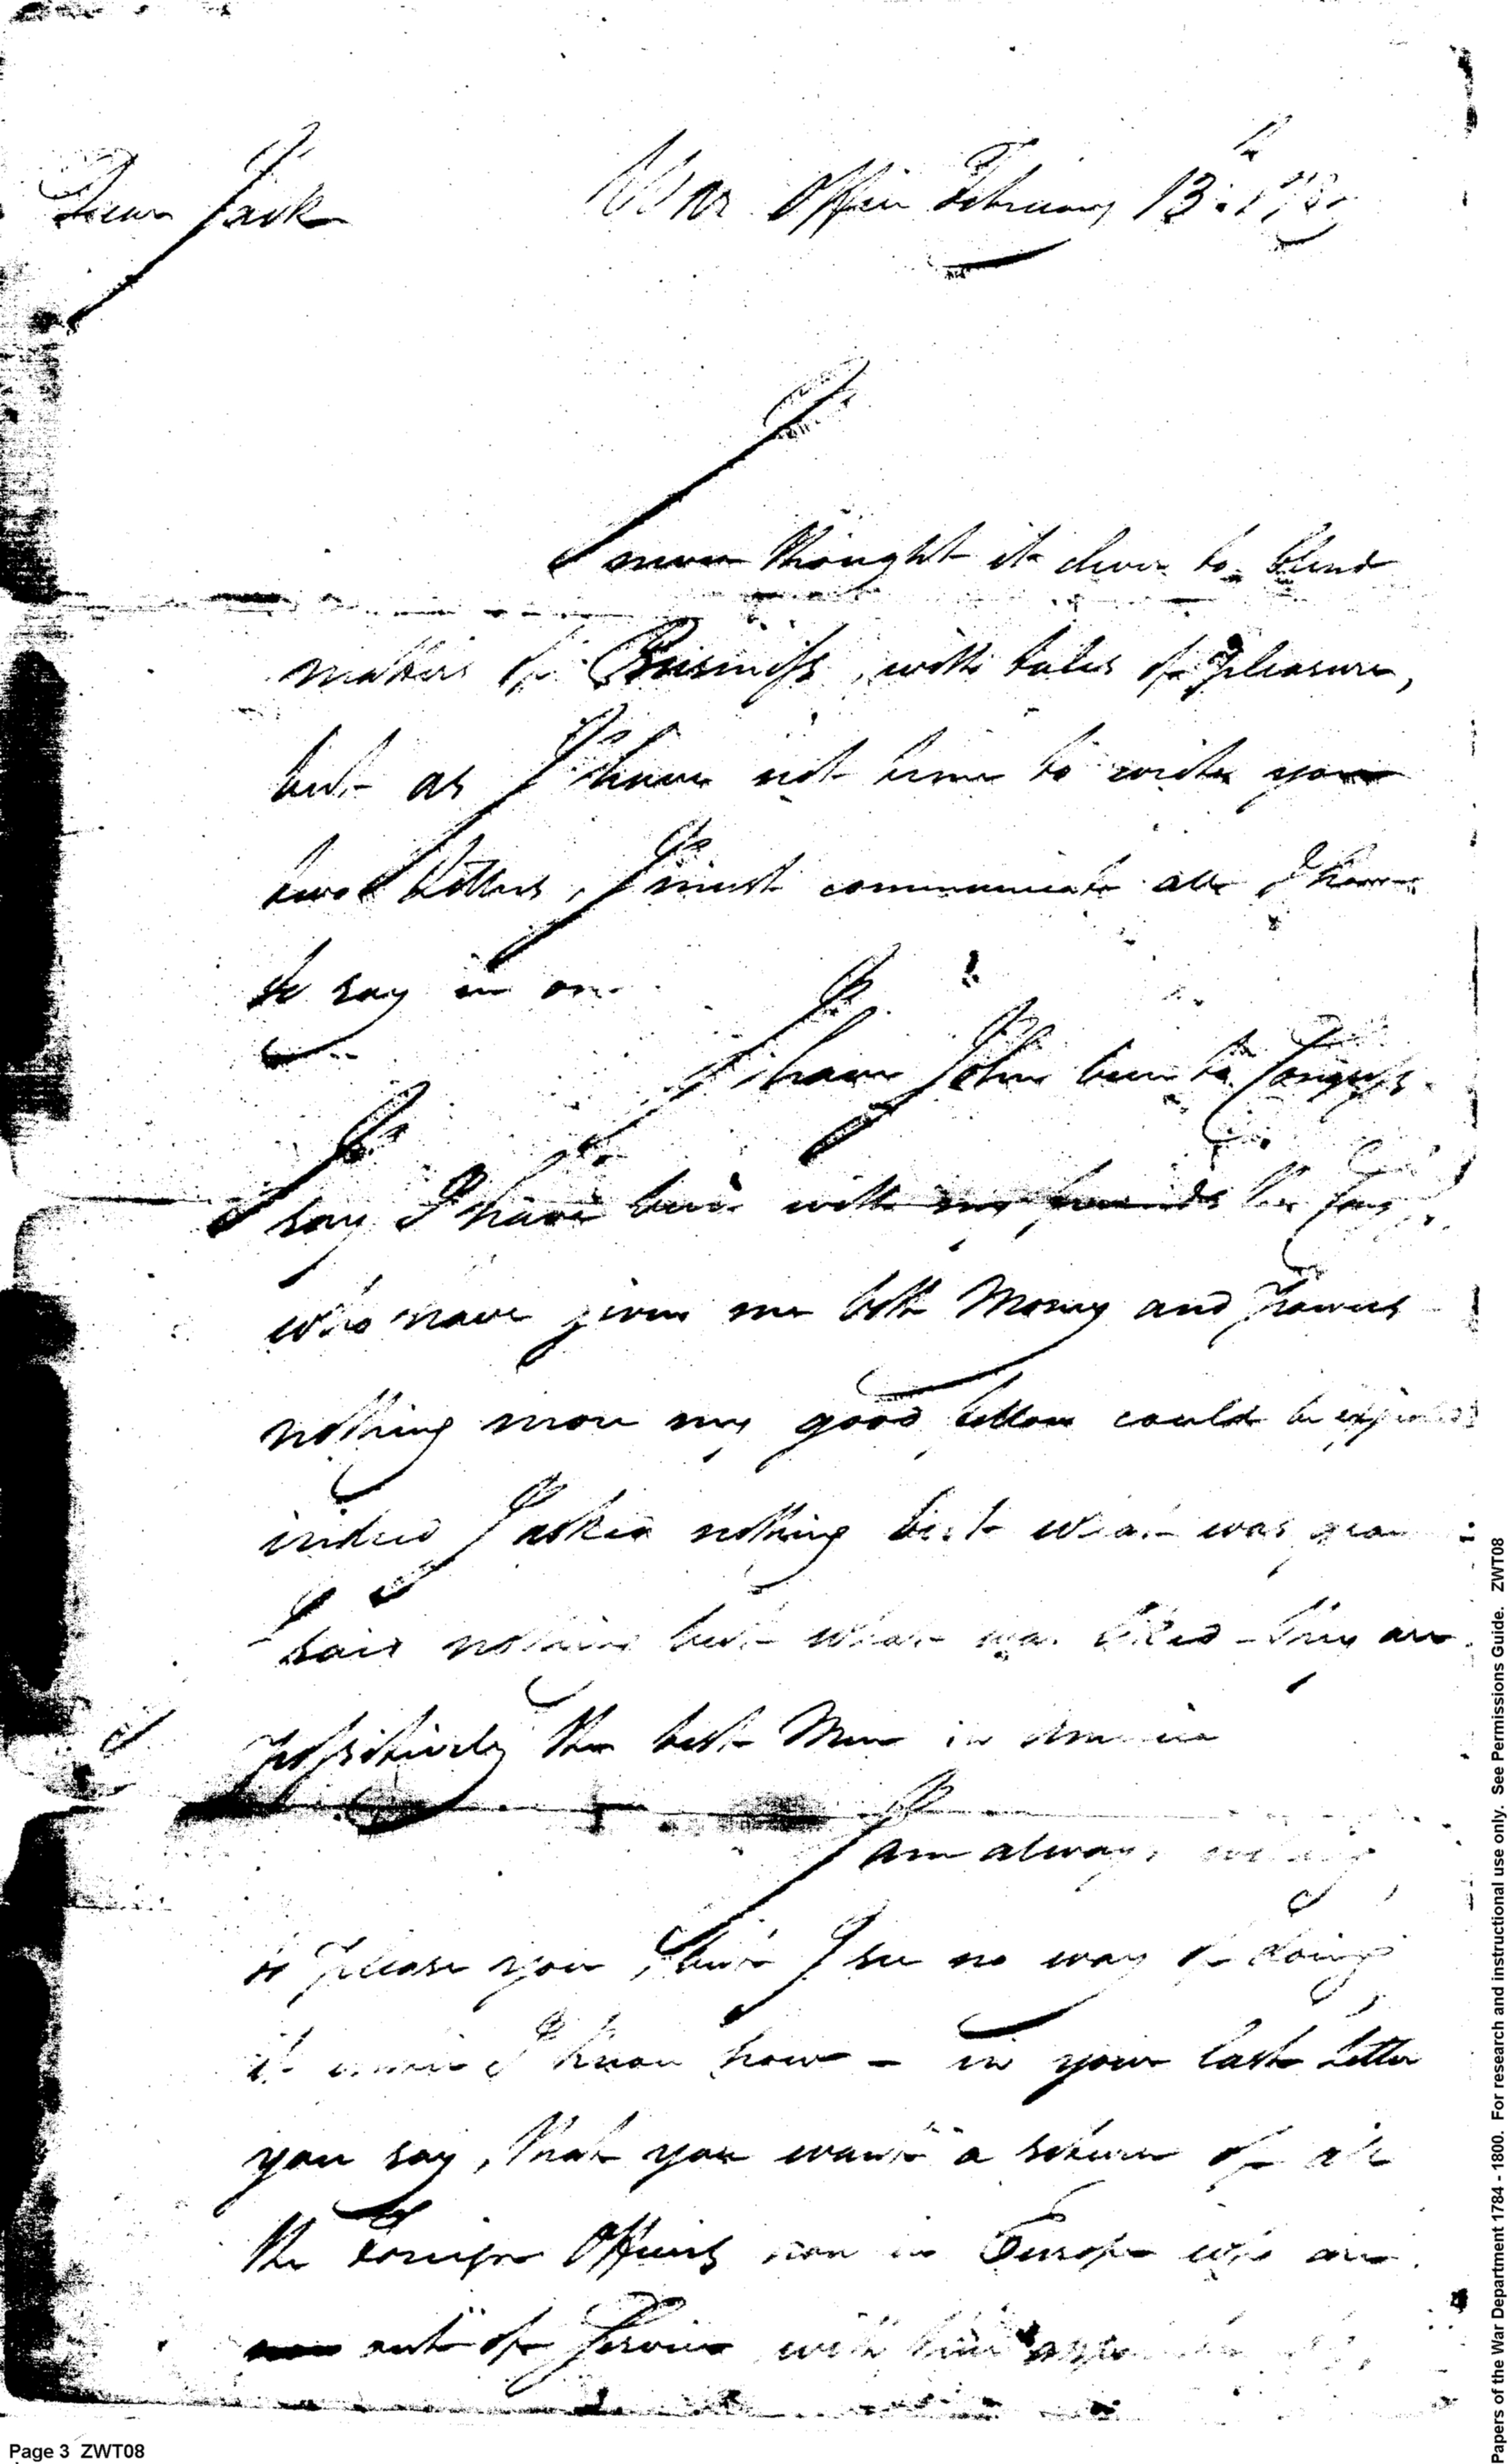 Dear Jack
War Office February 13th 178
I never thought it clever to blend
matters of Business, with tales of pleasure,
but as I have not time to write you
two Letters, I must communicate all I have
to say in one
I have John been to Congress.
I say I have been with my friends the
who have given me both Money and Powers
nothing more my good fellow could be expected
indeed I asked nothing but what was
I said nothing but what was liked - they are
possitively the best Men in America
I am always
to please you, but I see no way of doing
it I know how - in your last Letter
you say, that you want a return of all
the Foreign Officers now in Europe who are
out of Service with their
Page 3 ZWT08
Papers of the War Department 1784 - 1800. For research and instructional use only. See Permissions Guide. ZWT08